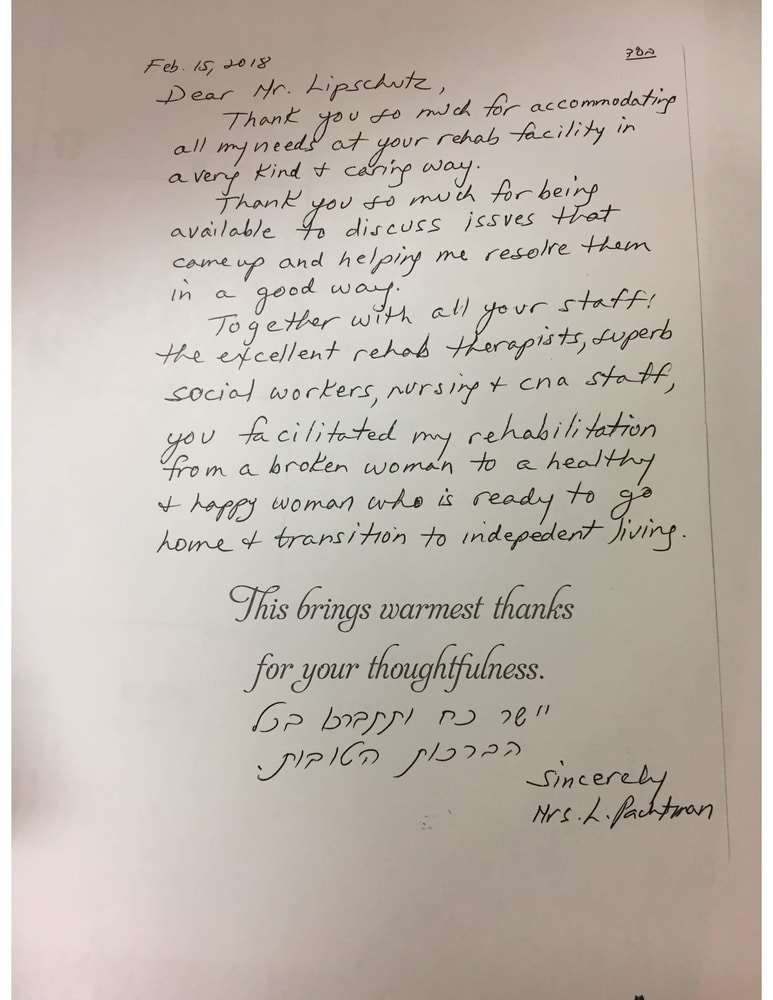 Feb. 15, 2018
בס"ד
Dear Mr. Lipschutz,
Thank you so much for accommodating
all my needs at your rehab facility in
a very kind + caring way.
Thank you so much for being
available to discuss issues that
came up and helping me resolve them
in a good way.
Together with all your staff!
the excellent rehab therapists, superb
social workers, nursing + cna staff,
you facilitated my rehabilitation
from a broken woman to a healthy
+ happy woman who is ready to go
home + transition to indepedent living.
This brings warmest thanks
for your thoughtfulness.
יישר כח ותתברכו בכל
הברכות הטובות.
Sincerely
Mrs. L. Pachtman